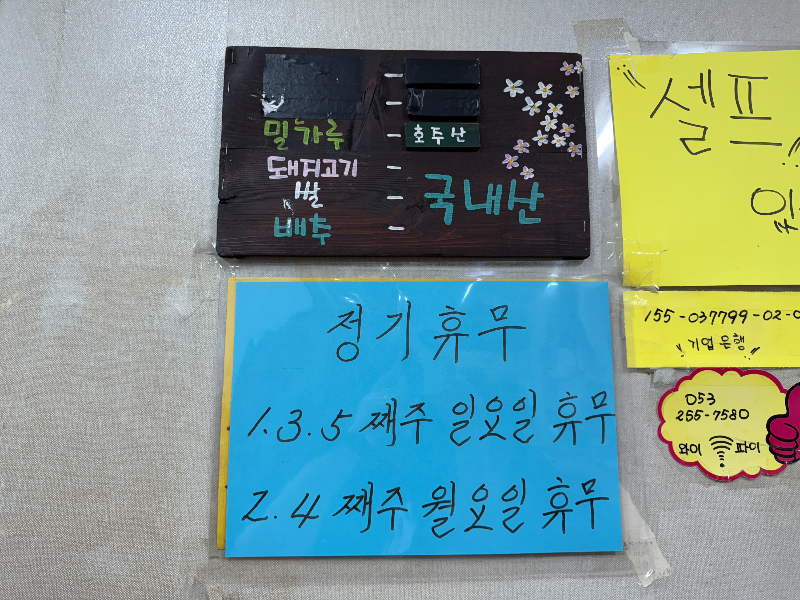 밀가루 - 호주산
돼지고기 -
쌀 - 국내산
배추 -
정기휴무
1.3.5 째주 일요일 휴무
2.4 째주 월요일 휴무
셀프
155-037799-02-0
"기업은행"
053
255-7580
와이 파이